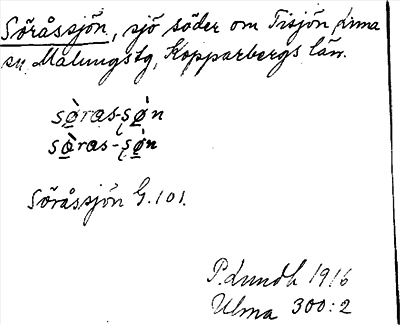 Söråssjön, sjö söder om Tisjön, Lima
sn, Malungs tg, Kopparbergs län.
sø̀ras-ʂø̀n
sø̀ras-ʂø̀n
Söråssjön G. 101.
P. Lundh 1916
Ulma 300:2